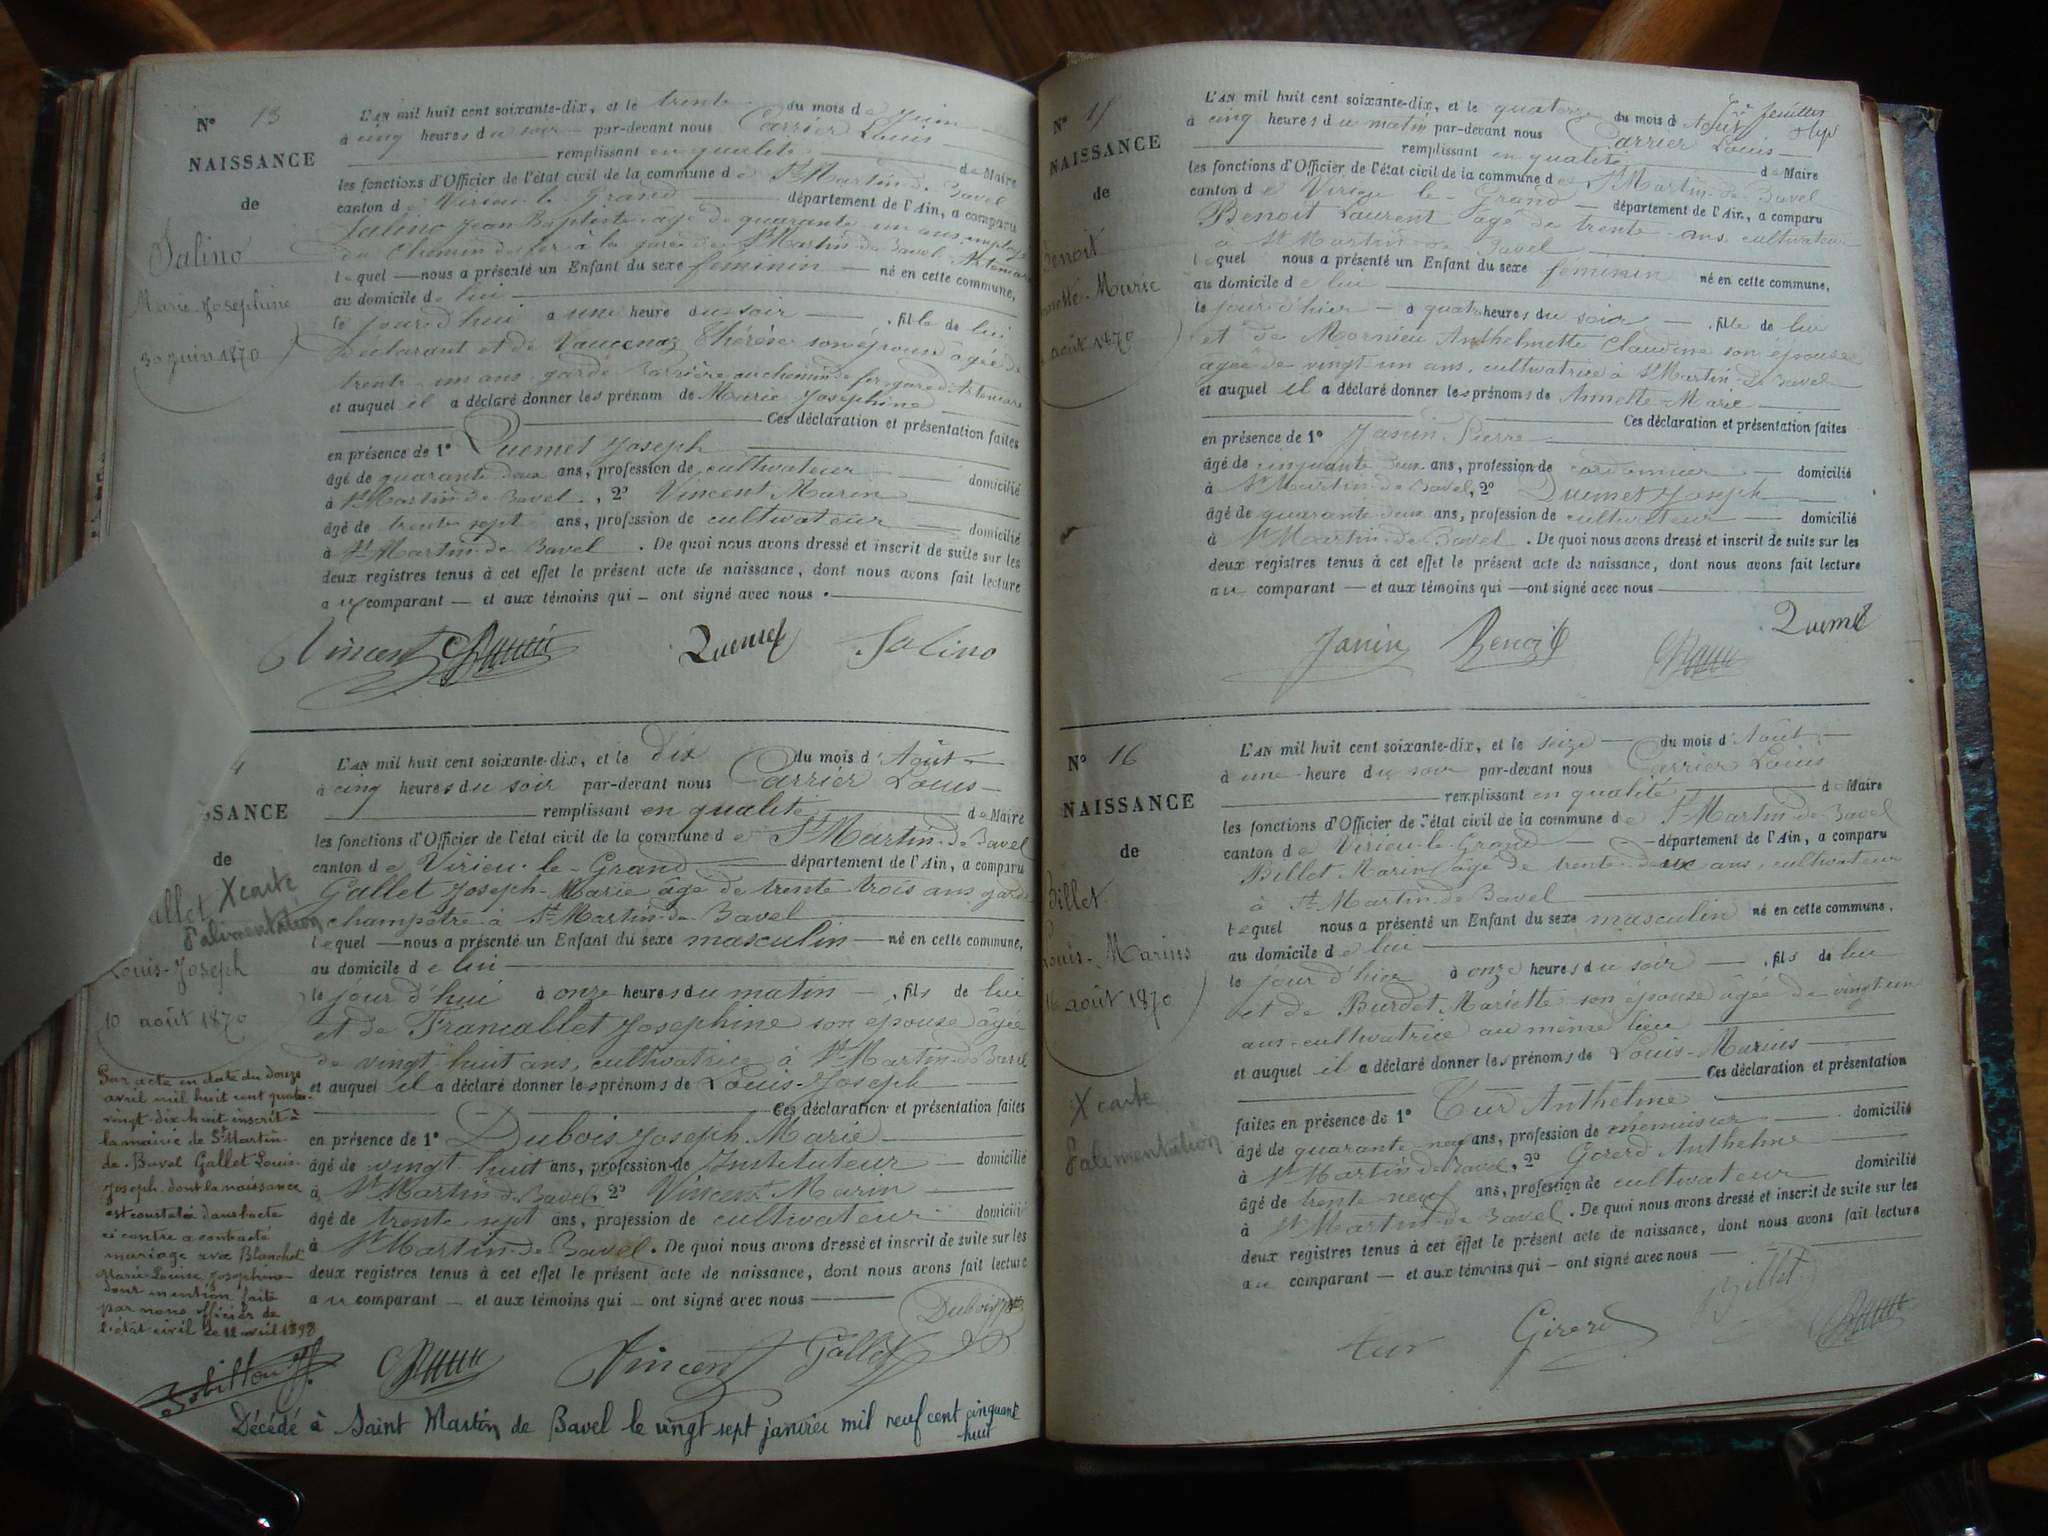 N° 13
NAISSANCE
de
Salino
Marie Josephine
30 Juin 1870
L'AN mil huit cent soixante-dix, et le trente du mois de Juin
à cinq heures du soir par-devant nous Carrier Louis
remplissant en qualité de Maire
les fonctions d'Officier de l'état civil de la commune de St Martin de Bavel
canton de Virieu-le-Grand département de l'Ain, a comparu
Salino Jean Baptiste agé de quarante un ans employé
du chemin de fer à la gare de St Martin de Bavel Artemare
lequel nous a présenté un Enfant du sexe féminin né en cette commune,
au domicile de lui
le jour d'hui à une heure du soir , fille de lui
Déclarant et de Vaucenaz Thérèse son épouse agée de
trente un ans garde Barrière au chemin de fer gare d'Artemare
et auquel il a déclaré donner les prénom de Marie Josephine
Ces déclaration et présentation faites
en présence de 1° Quemet Joseph
âgé de quarante deux ans, profession de cultivateur domicilié
à St Martin-de Bavel, 2° Vincent Marin
âgé de trente sept ans, profession de cultivateur domicilié
à St Martin-de Bavel. De quoi nous avons dressé et inscrit de suite sur les
deux registres tenus à cet effet le présent acte de naissance, dont nous avons fait lecture
au comparant et aux témoins qui ont signé avec nous.
Vincent Quemet Salino
4
SSANCE
de
allet X carte
d'alimentation
Louis-Joseph
10 août 1870
L'AN mil huit cent soixante-dix, et le dix du mois d'Août
à cinq heures du soir par-devant nous Carrier Louis
remplissant en qualité de Maire
les fonctions d'Officier de l'état civil de la commune de St Martin-de Bavel
canton de Virieu-le-Grand département de l'Ain, a comparu
Gallet Joseph-Marie âgé de trente trois ans garde
champêtre à St Martin-de Bavel
lequel nous a présenté un Enfant du sexe masculin né en cette commune,
au domicile de lui
le jour d'hui à onze heures du matin , fils de lui
et de Francallet Josephine son épouse âgée
de vingt-huit ans, cultivatrice à St Martin-de Bavel
et auquel il a déclaré donner les prénoms de Louis-Joseph
Ces déclaration et présentation faites
en présence de 1° Dubois Joseph Marie
âgé de vingt huit ans, profession de Instituteur domicilié
à St Martin-de Bavel, 2° Vincent Marin
âgé de trente sept ans, profession de cultivateur domicilié
à St Martin-de-Bavel. De quoi nous avons dressé et inscrit de suite sur les
deux registres tenus à cet effet le présent acte de naissance, dont nous avons fait lecture
au comparant et aux témoins qui ont signé avec nous
Par acte en date du douze
avril mil huit cent quatre-
vingt-dix-huit inscrit à
la mairie de St Martin-
de-Bavel Gallet Louis-
Joseph dont la naissance
est constatée dans l'acte
ci contre a contracté
mariage avec Blanchet
Marie Louise Josephine
dont mention faite
par nous officier de
l'état civil le 12 avril 1898
Vincent Gallet Dubois
Décédé à Saint Martin de Bavel le vingt sept janvier mil neuf cent cinquante
huit
N° 15
NAISSANCE
de
Benoit
Annette-Marie
août 1870
L'AN mil huit cent soixante-dix, et le quatorze du mois d'Août
à cinq heures du matin par-devant nous Carrier Louis
remplissant en qualité de Maire
les fonctions d'Officier de l'état civil de la commune de St Martin-de Bavel
canton de Virieu-le-Grand département de l'Ain, a comparu
Benoit Laurent agé de trente ans, cultivateur
à St Martin-de Bavel
lequel nous a présenté un Enfant du sexe féminin né en cette commune,
au domicile de lui
le jour d'hier à quatre heures du soir , fille de lui
et de Mornieu Anthelmette Claudine son épouse
âgée de vingt un ans, cultivatrice à St Martin-de Bavel
et auquel il a déclaré donner les prénoms de Annette-Marie
Ces déclaration et présentation faites
en présence de 1° Janin Pierre
âgé de cinquante deux ans, profession de cordonnier domicilié
à St Martin-de Bavel, 2° Quemet Joseph
âgé de quarante deux ans, profession de cultivateur domicilié
à St Martin-de Bavel. De quoi nous avons dressé et inscrit de suite sur les
deux registres tenus à cet effet le présent acte de naissance, dont nous avons fait lecture
au comparant et aux témoins qui ont signé avec nous
Quemet
Janin Benoit
N° 16
NAISSANCE
de
Billet
Louis-Marius
16 août 1870
X carte
d'alimentation
L'AN mil huit cent soixante-dix, et le seize du mois d'Août
à une heure du soir par-devant nous Carrier Louis
remplissant en qualité de Maire
les fonctions d'Officier de l'état civil de la commune de St Martin-de Bavel
canton de Virieu-le-Grand département de l'Ain, a comparu
Billet Marin âgé de trente-deux ans, cultivateur
à St Martin-de Bavel
lequel nous a présenté un Enfant du sexe masculin né en cette commune,
au domicile de lui
le jour d'hier à onze heures du soir , fils de lui
et de Burdet Mariette son épouse âgée de vingt-un
ans-cultivatrice au même lieu
et auquel il a déclaré donner les prénoms de Louis-Marius
Ces déclaration et présentation
faites en présence de 1° Tur Anthelme
âgé de quarante-neuf ans, profession de menuisier domicilié
à St Martin-de Bavel, 2° Gererd Anthelme
âgé de trente-neuf ans, profession de cultivateur domicilié
à St Martin-de Bavel. De quoi nous avons dressé et inscrit de suite sur les
deux registres tenus à cet effet le présent acte de naissance, dont nous avons fait lecture
au comparant et aux témoins qui ont signé avec nous
Billet
tur Girerd